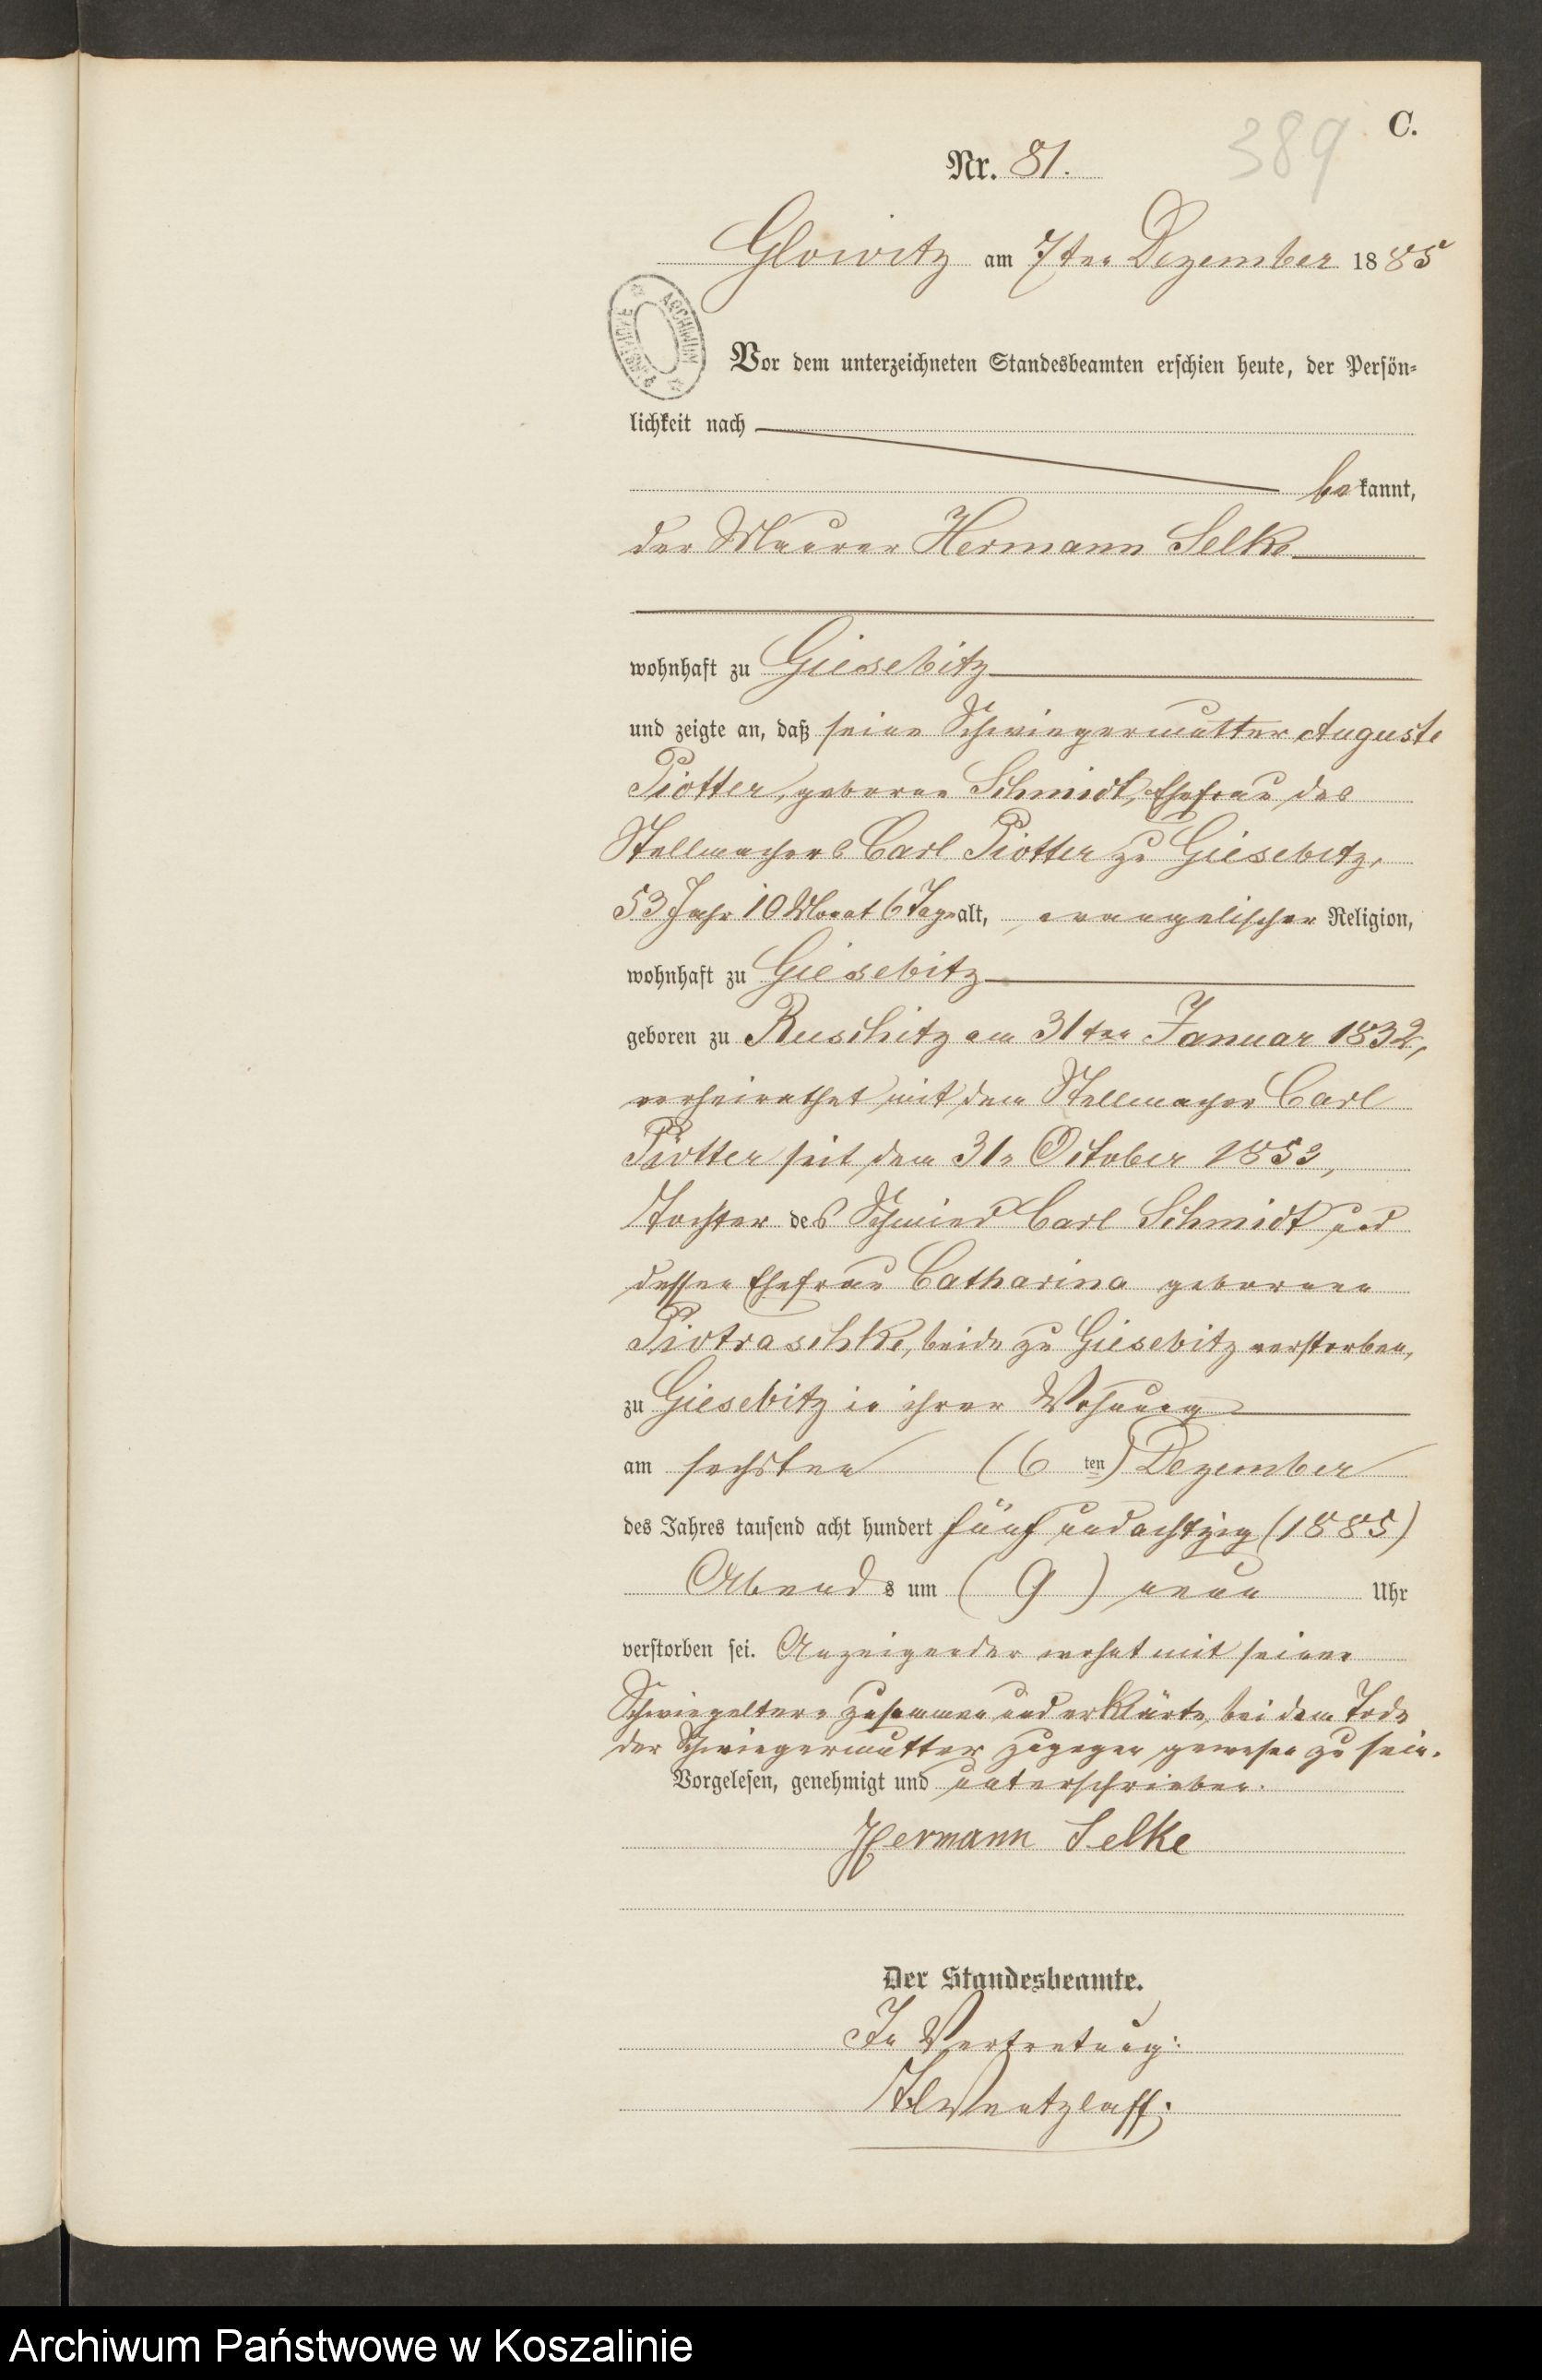 C.
389
Nr. 81.
Glowitz am 7ten Dezember 1885
ARCHIWUM PAŃSTWOWE
Vor dem unterzeichneten Standesbeamten erschien heute, der Persön-
lichkeit nach
bekannt,
der Maurer Hermann Selke
wohnhaft zu Giesebitz
und zeigte an, daß seine Schwiegermutter Auguste
Piotter, geborne Schmidt, Ehefrau des
Stellmachers Carl Piotter zu Giesebitz,
53 Jahr 10 Monat 6 Tage alt, evangelischer Religion,
wohnhaft zu Giesebitz
geboren zu Ruschitz am 31ten Januar 1832,
verheirathet mit dem Stellmacher Carl
Piotter seit dem 31n October 1853,
Tochter des Schmied Carl Schmidt und
dessen Ehefrau Catharina gebornen
Piotraschke, beide zu Giesebitz verstorben,
zu Giesebitz in ihrer Wohnung
am sechsten (6 ten) Dezember
des Jahres tausend acht hundert fünf und achtzig (1885)
Abends um (9) neun Uhr
verstorben sei. Anzeigender wohnt mit seinen
Schwiegeltern zusammen und erklärte, bei dem Tode
der Schwiegermutter zugegen gewesen zu sein.
Vorgelesen, genehmigt und unterschrieben.
Hermann Selke
Der Standesbeamte.
In Vertretung:
Wentzlaff.
Archiwum Państwowe w Koszalinie